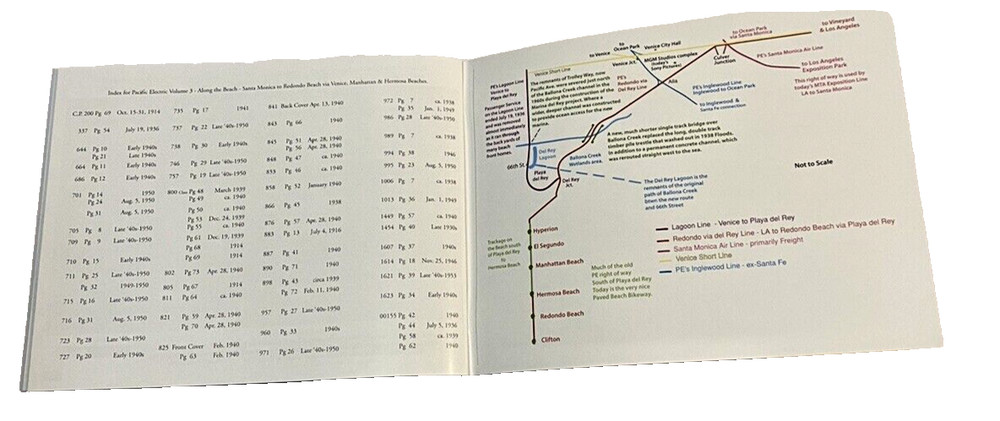 Index for Pacific Electric Volume 3 - Along the Beach - Santa Monica to Redondo Beach via Venice, Manhattan & Hermosa Beaches.
C.P. 200 Pg 69 Oct. 15-31, 1914
337 Pg 54 July 19, 1936
644 Pg 10 Early 1940s
Pg 21 Late 1940s
664 Pg 11 Early 1940s
686 Pg 12 Early 1940s
701 Pg 14 1950
Pg 24 Aug. 5, 1950
Pg 31 Aug. 5, 1950
705 Pg 8 Late '40s-1950
709 Pg 9 Late '40s-1950
710 Pg 15 Early 1940s
711 Pg 25 Late '40s-1950
Pg 32 1949-1950
715 Pg 16 Late '40s-1950
716 Pg 31 Aug. 5, 1950
723 Pg 28 Late '40s-1950
727 Pg 20 Early 1940s
735 Pg 17 1941
737 Pg 22 Late '40s-1950
738 Pg 30 Early 1940s
746 Pg 29 Late '40s-1950
757 Pg 19 Late '40s-1950
800 Class Pg 48 March 1939
Pg 49 ca. 1940
Pg 50 ca. 1940
Pg 53 Dec. 24, 1939
Pg 55 ca. 1940
Pg 61 Dec. 19, 1939
Pg 68 1914
Pg 69 1914
802 Pg 73 Apr. 28, 1940
805 Pg 67 1914
811 Pg 64 ca. 1940
821 Pg 59 Apr. 28, 1940
Pg 70 Apr. 28, 1940
825 Front Cover Feb. 1940
Pg 63 Feb. 1940
841 Back Cover Apr. 13, 1940
843 Pg 66 1940
845 Pg 51 Apr. 28, 1940
Pg 56 Apr. 28, 1940
848 Pg 47 ca. 1940
853 Pg 46 ca. 1940
858 Pg 52 January 1940
866 Pg 45 1938
876 Pg 57 Apr. 28, 1940
883 Pg 13 July 4, 1916
887 Pg 41 1940
890 Pg 71 1940
898 Pg 43 circa 1939
Pg 72 Feb. 11, 1940
957 Pg 27 Late '40s-1950
960 Pg 33 1940s
971 Pg 26 Late '40s-1950
972 Pg 7 ca. 1938
Pg 35 Jan. 1, 1949
986 Pg 28 Late '40s-1950
989 Pg 7 ca. 1938
994 Pg 38 1946
995 Pg 23 Aug. 5, 1950
1006 Pg 7 ca. 1938
1013 Pg 36 Jan. 1, 1949
1449 Pg 57 ca. 1940
1454 Pg 40 Late 1930s
1607 Pg 37 1940s
1614 Pg 18 Nov. 25, 1946
1621 Pg 39 Late '40s-1953
1623 Pg 34 Early 1940s
00155 Pg 42 1940
Pg 44 July 5, 1936
Pg 58 ca. 1939
Pg 62 1940
to Vineyard
& Los Angeles
to Ocean Park
via Santa Monica
to
Ocean Park
to Venice
Venice City Hall
Venice Short Line
Venice Jct.
MGM Studios complex
(today's
Sony Pictures)
Culver
Junction
PE's Santa Monica Air Line
to Los Angeles
Exposition Park
This right of way is used by
today's MTA Exposition Line
LA to Santa Monica
PE's Lagoon Line
Venice to
Playa del Rey
Passenger Service
on the Lagoon Line
ended July, 1936
and was removed
almost immediately
as it ran through
the back yards of
many beach
front homes.
The remnants of Trolley Way, now
Pacific Ave. were erased just north
of the Ballona Creek channel in the
1960s during the construction of the
Marina del Rey project. Where a
wider, deeper channel was constructed
to provide ocean access for the new
marina.
PE's
Redondo via
Del Rey Line
Alla
PE's Inglewood Line
Inglewood to Ocean Park
to Inglewood &
Santa Fe connection
A new, much shorter single track bridge over
Ballona Creek replaced the long, double track
timber pile trestle that washed out in 1938 Floods,
in addition to a permanent concrete channel, which
was rerouted straight west to the sea.
Del Rey
Lagoon
66th St.
Playa
del Rey
Ballona Creek
Wetlands area
Del Rey
Jct.
The Del Rey Lagoon is the
remnants of the original
path of Ballona Creek
btwn the new route
and 66th Street
Not to Scale
Trackage on
the Beach south
of Playa del Rey
to Hermosa Beach
Hyperion
El Segundo
Manhattan Beach
Hermosa Beach
Redondo Beach
Clifton
Much of the old
PE right of way
South of Playa del Rey
Today is the very nice
Paved Beach Bikeway.
Lagoon Line - Venice to Playa del Rey
Redondo via del Rey Line - LA to Redondo Beach via Playa del Rey
Santa Monica Air Line - primarily Freight
Venice Short Line
PE's Inglewood Line - ex-Santa Fe